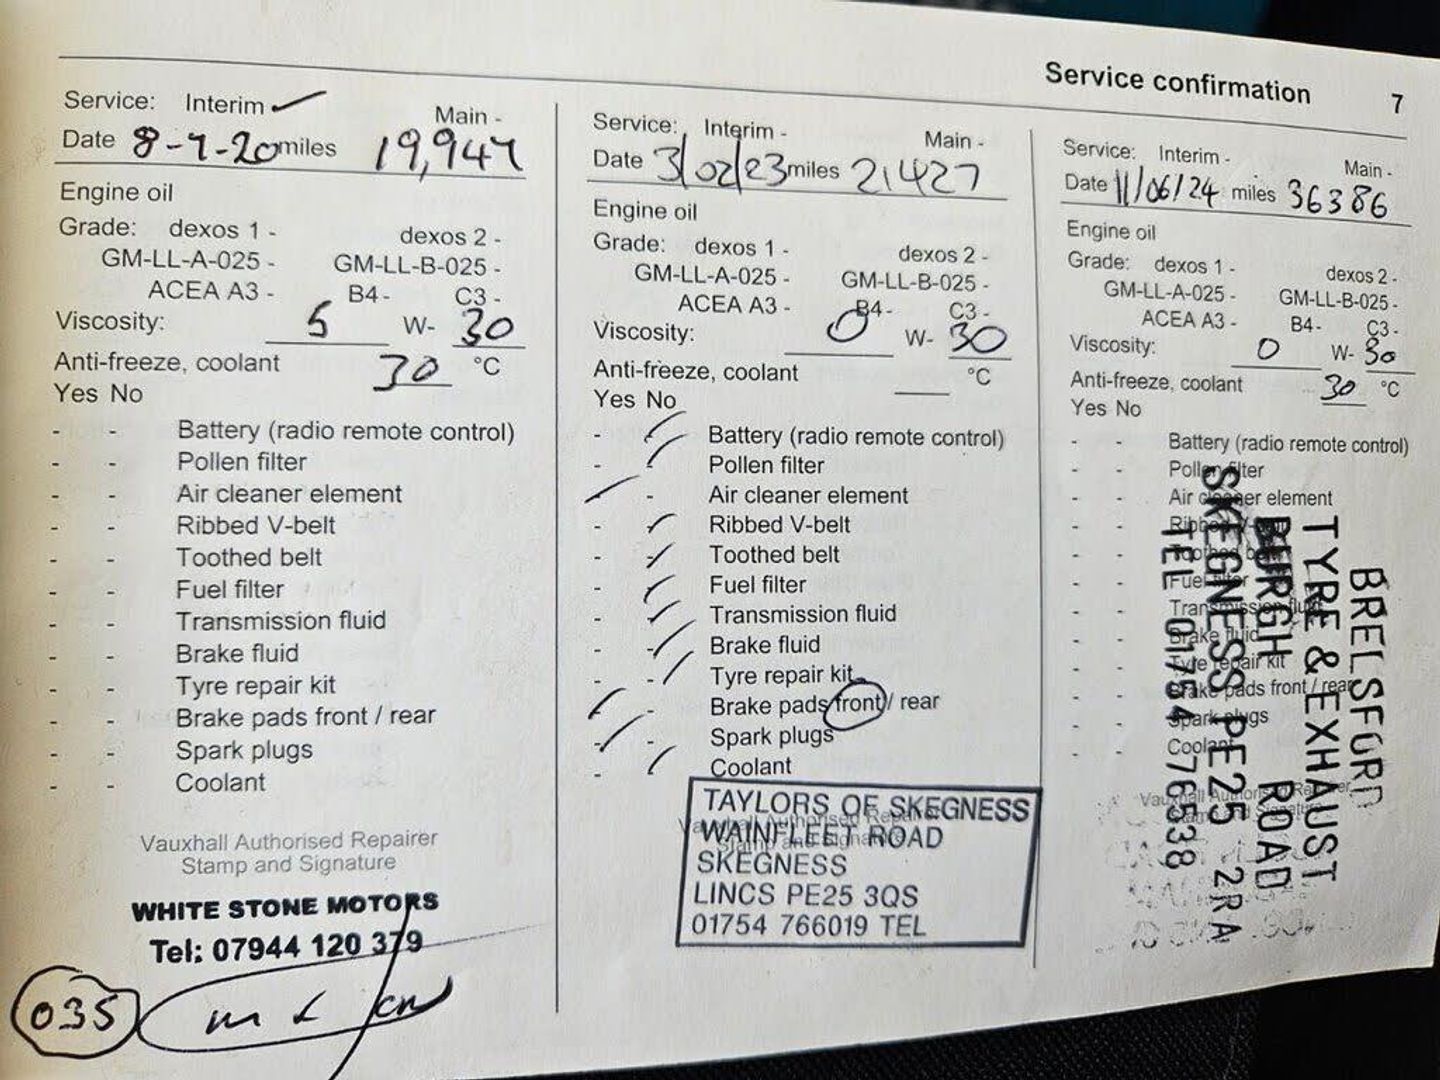 Service confirmation 7
Service: Interim ✓ Main -
Date 8-7-20 miles 19,947
Engine oil
Grade: dexos 1 - dexos 2 -
GM-LL-A-025 - GM-LL-B-025 -
ACEA A3 - B4 - C3 -
Viscosity: 5 W- 30
Anti-freeze, coolant 30 °C
Yes No
- - Battery (radio remote control)
- - Pollen filter
- - Air cleaner element
- - Ribbed V-belt
- - Toothed belt
- - Fuel filter
- - Transmission fluid
- - Brake fluid
- - Tyre repair kit
- - Brake pads front / rear
- - Spark plugs
- - Coolant
Vauxhall Authorised Repairer
Stamp and Signature
WHITE STONE MOTORS
Tel: 07944 120 379
035
Service: Interim - Main -
Date 3/02/23 miles 21427
Engine oil
Grade: dexos 1 - dexos 2 -
GM-LL-A-025 - GM-LL-B-025 -
ACEA A3 - B4 - C3 -
Viscosity: 0 W- 30
Anti-freeze, coolant °C
Yes No
- ✓ Battery (radio remote control)
- ✓ Pollen filter
✓ - Air cleaner element
- ✓ Ribbed V-belt
- ✓ Toothed belt
- ✓ Fuel filter
- ✓ Transmission fluid
- ✓ Brake fluid
- ✓ Tyre repair kit
✓ - Brake pads front / rear
✓ - Spark plugs
- ✓ Coolant
Vauxhall Authorised Repairer
Stamp and Signature
TAYLORS OF SKEGNESS
WAINFLEET ROAD
SKEGNESS
LINCS PE25 3QS
01754 766019 TEL
Service: Interim - Main -
Date 11/06/24 miles 36386
Engine oil
Grade: dexos 1 - dexos 2 -
GM-LL-A-025 - GM-LL-B-025 -
ACEA A3 - B4 - C3 -
Viscosity: 0 W- 30
Anti-freeze, coolant 30 °C
Yes No
- - Battery (radio remote control)
- - Pollen filter
- - Air cleaner element
- - Ribbed V-belt
- - Toothed belt
- - Fuel filter
- - Transmission fluid
- - Brake fluid
- - Tyre repair kit
- - Brake pads front / rear
- - Spark plugs
- - Coolant
Vauxhall Authorised Repairer
Stamp and Signature
BRELSFORD
TYRE & EXHAUST
BURGH ROAD
SKEGNESS PE25 2RA
TEL 01754 76538